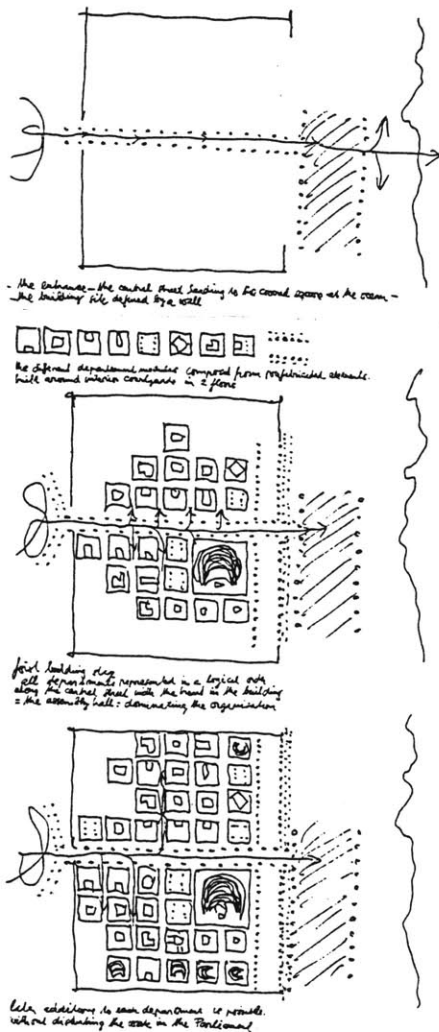 - the entrance - the central street leading to the covered square at the ocean -
- the building site defined by a wall
the different department modules composed from prefabricated elements.
built around interior courtyards in 2 floors
first building step
all departments represented in a logical order
along the central street with the heart in the building
= the assembly hall : dominating the organisation
later additions to each department is possible
without disturbing the work in the Parliament